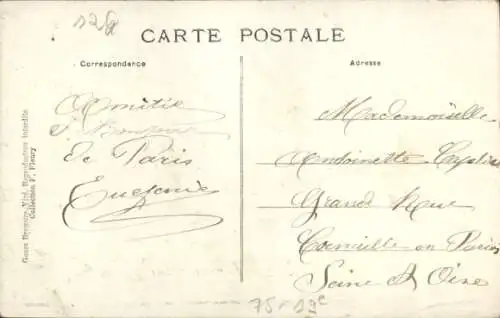 128
CARTE POSTALE
Correspondance
Adresse
Amitié
& Bonjour
de Paris
Eugénie
Mademoiselle
Antoinette
Grande Rue
Cormeille en Parisis
Seine & Oise
75 - 19e
Reproduction Interdite
Collection F. Fleury